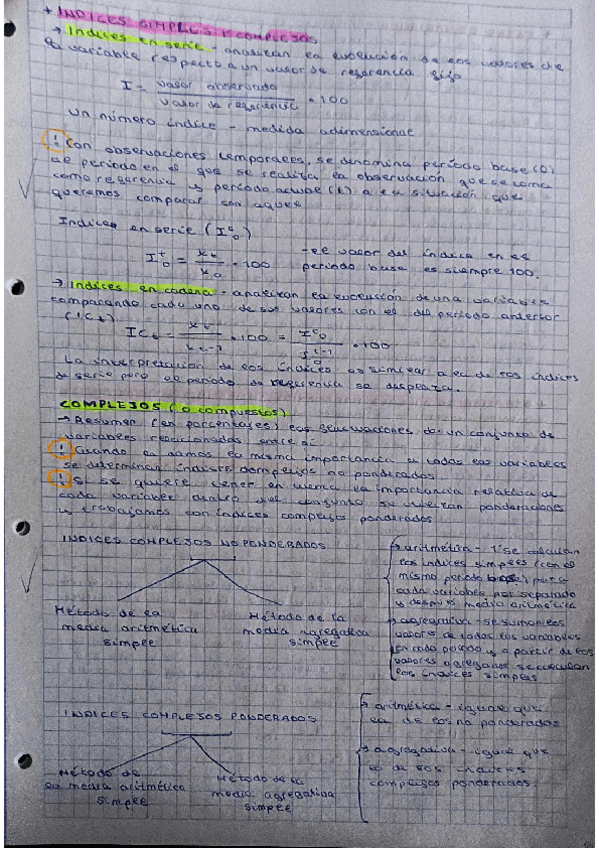 * INDICES SIMPLES Y COMPLEJOS
→ Indices en serie - analizan la evolución de los valores de
la variable respecto a un valor de referencia fijo
I = valor observado / valor de referencia · 100
Un número índice - medida adimensional
! Con observaciones temporales, se denomina período base (0)
al período en el que se realiza la observación que se toma
como referencia y período actual (t) a la situación que
queremos comparar con aquel
Indices en serie (I^t_0)
I^t_0 = x_t / x_0 · 100 - el valor del índice en el
período base es siempre 100.
→ Indices en cadena - analizan la evolución de una variable
comparando cada uno de sus valores con el del período anterior
(IC_t) IC_t = x_t / x_t-1 · 100 = I^t_0 / I^t-1_0 · 100
La interpretación de los índices es similar a la de los índices
de serie pero el período de referencia se desplaza.
COMPLEJOS (o compuestos)
→ Resumen (en porcentajes) las fluctuaciones de un conjunto de
variables relacionadas entre sí
! Cuando le damos la misma importancia a todas las variables
se determinan índices complejos no ponderados
! Si se quiere tener en cuenta la importancia relativa de
cada variable dentro del conjunto se utilizan ponderaciones
y trabajamos con índices complejos ponderados
INDICES COMPLEJOS NO PONDERADOS
Método de la media aritmética simple
Método de la media agregativa simple
→ aritmética - 1º se calculan
los índices simples (con el
mismo período base) para
cada variable por separado
y después media aritmética
→ agregativa - se suman los
valores de todas las variables
en cada período y a partir de los
valores agregados se calculan
los índices simples
INDICES COMPLEJOS PONDERADOS
Método de la media aritmética simple
Método de la media agregativa simple
→ aritmética - igual que
la de los no ponderados
→ agregativa - igual que
la de los índices
complejos ponderados.